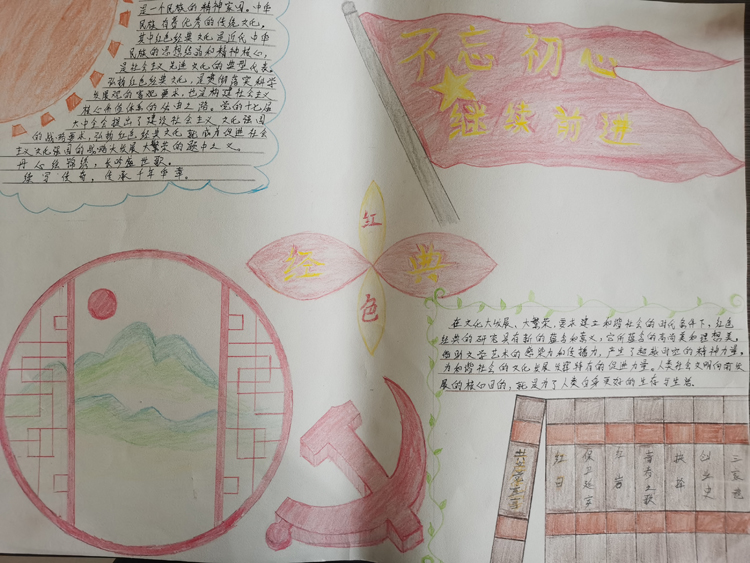 是一个民族的精神家园。中华
民族有着优秀的传统文化。
其中红色经典文化是近代中华
民族的思想结晶和精神核心,
是社会主义先进文化的典型代表。
弘扬红色经典文化,是贯彻落实科学
发展观的客观要求,也是构建社会主义
核心价值体系的必由之路。党的十七届
六中全会提出了建设社会主义文化强国
的战略要求,弘扬红色经典文化就成为促进社会
主义文化强国的战略大发展大繁荣的题中之义。
丹心绘锦绣,长吟盛世歌。
续写传奇,传承千年中华。
不忘初心
继续前进
红
经典
色
在文化大发展、大繁荣,要求建立和谐社会的时代条件下,红色
经典的研究具有新的蕴含和意义,它所蕴含的高尚美和理想美,
借助文学艺术的感染力和传播力,产生了超越时空的精神力量。
为和谐社会的文化发展发挥特有的促进力量。人类社会文明向前发
展的核心目的,就是为了人类
共产党宣言
红日
保卫延安
红岩
青春之歌
抉择
创业史
三家巷